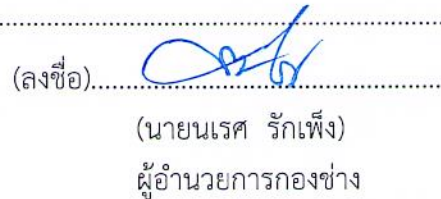 (ลงชื่อ)
(นายนเรศ รักเพ็ง)
ผู้อำนวยการกองช่าง